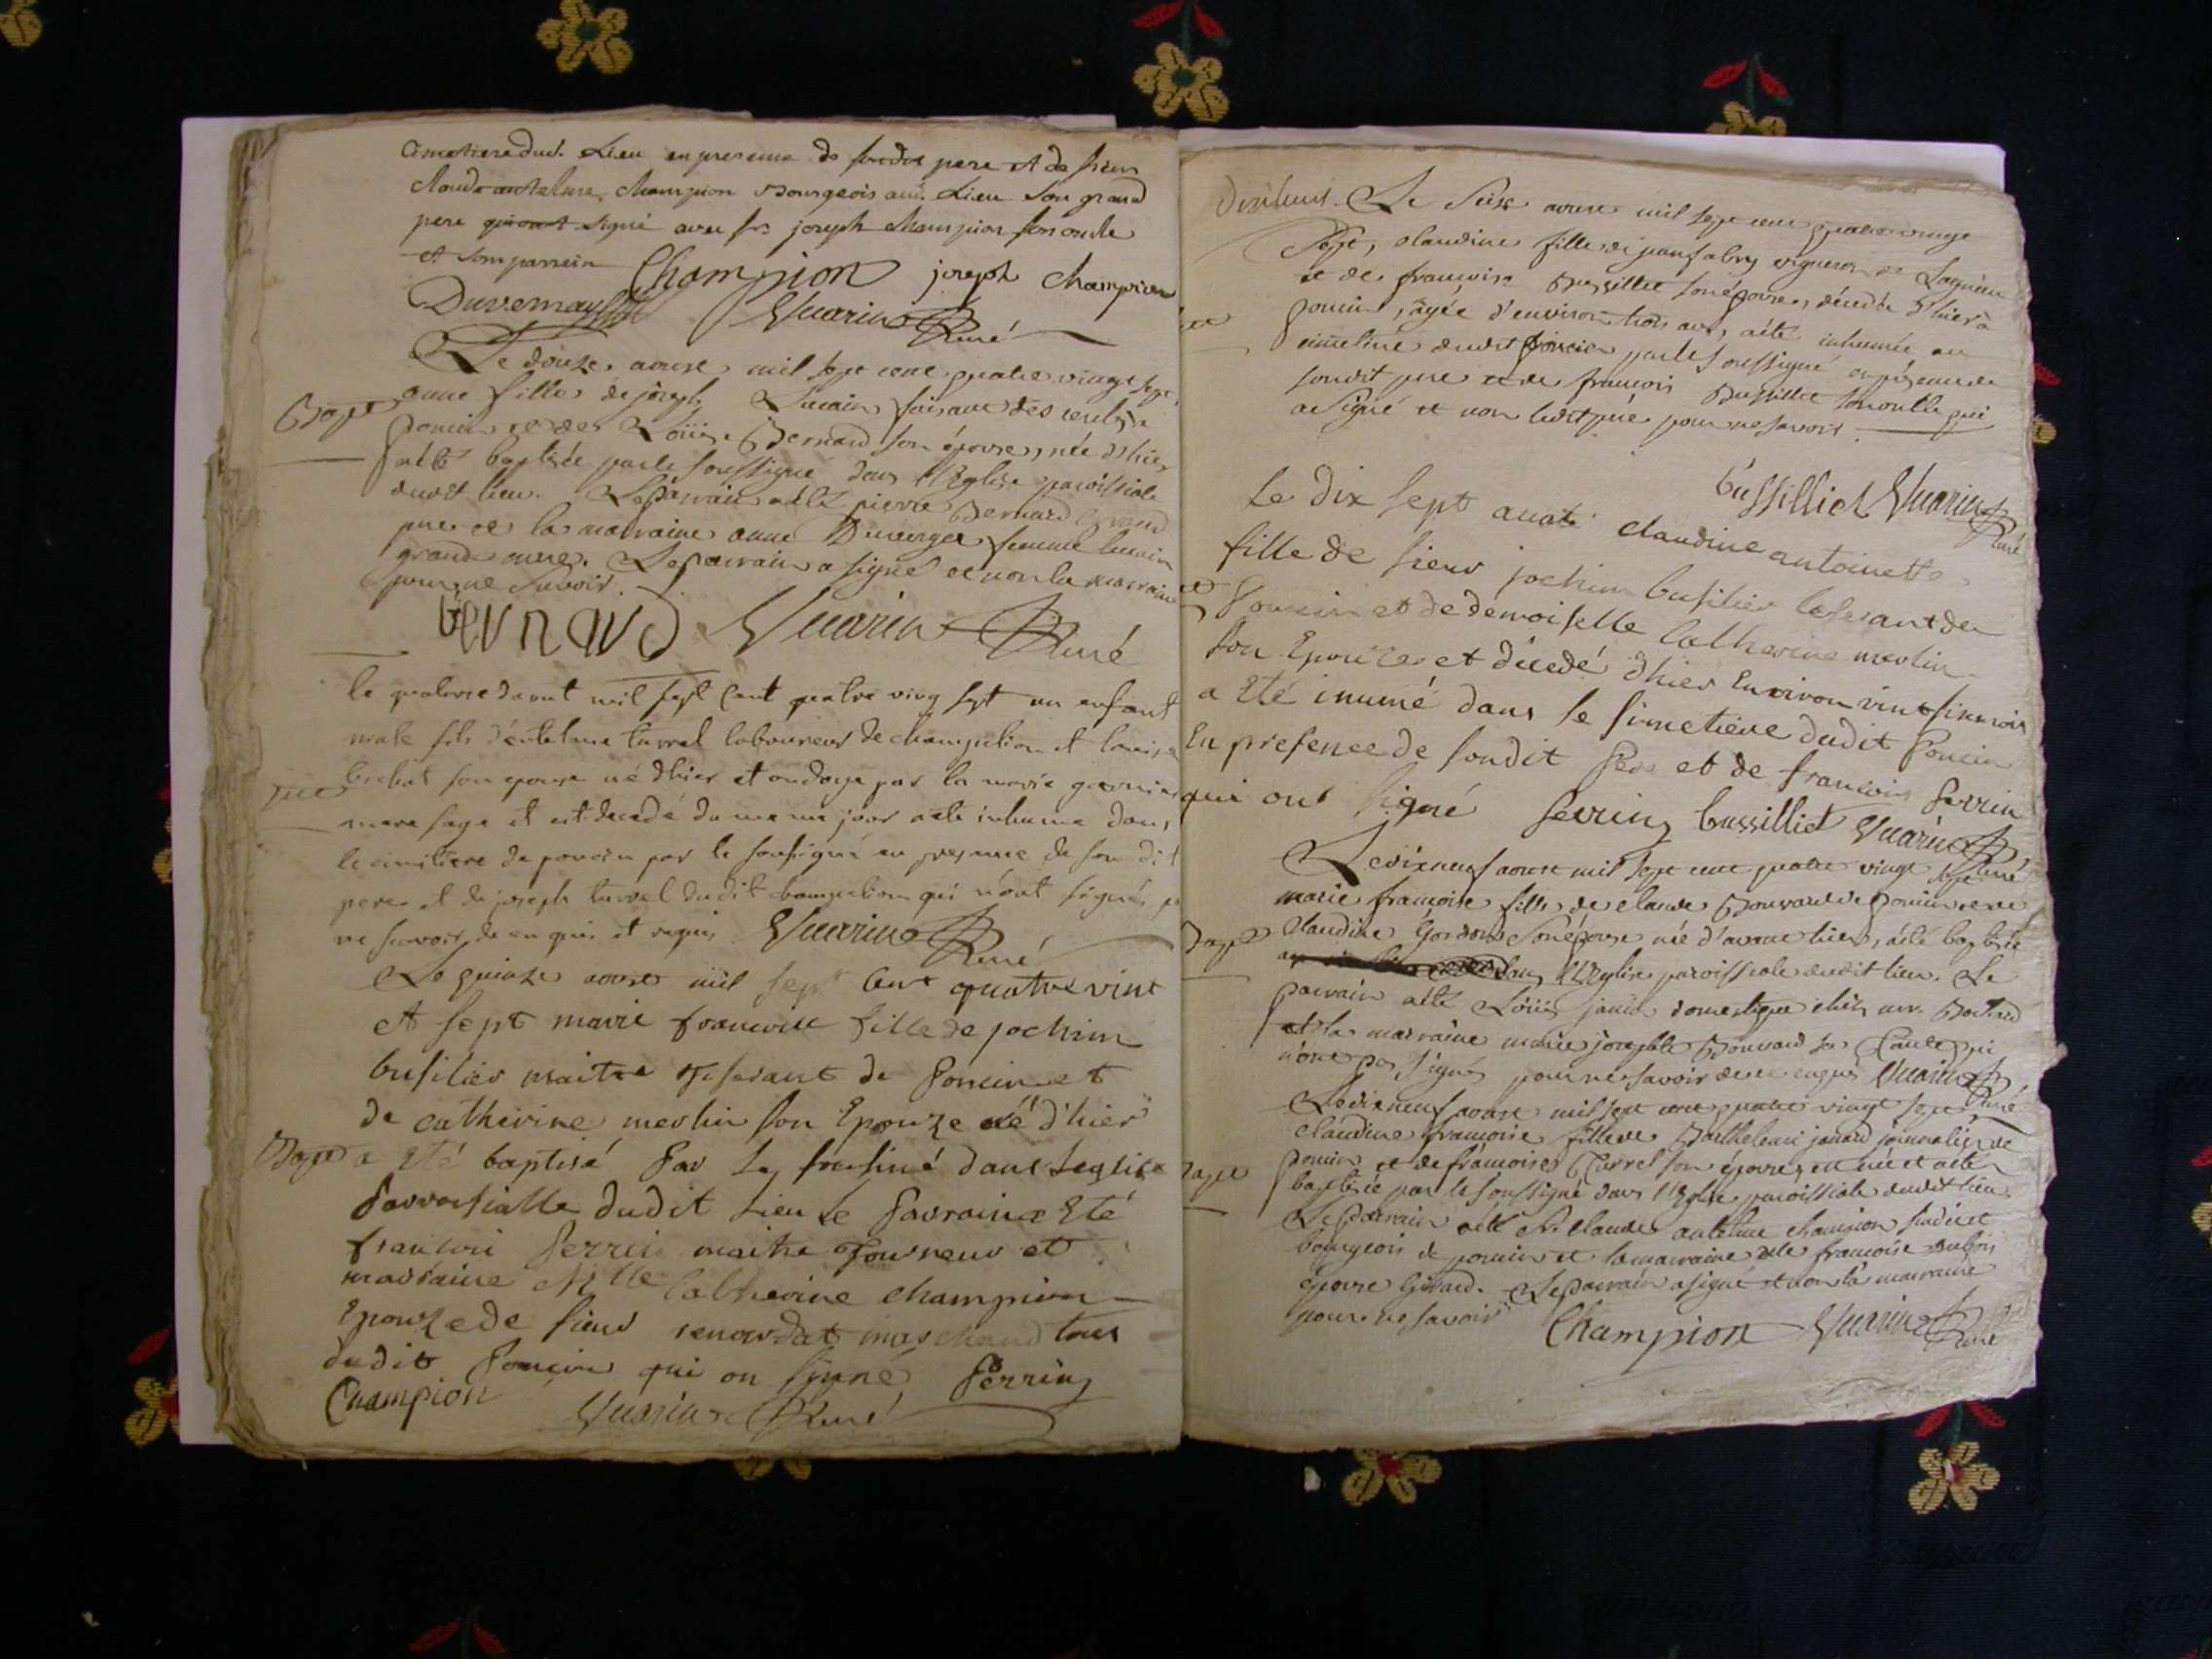 cimetiere dud. Lieu en presence de sondit pere et de sieur
claude antelme champion Bourgeois aud. Lieu son grand
pere qui ont signé avec sr joseph champion son oncle
et son parrein Champion joseph champion
Duvernay Vuarin Curé
Le douze aoust mil sept cent quatre vingt sept
Bapt anne fille de joseph Lucain faisant des
Poncin et de Loüise Bernard son épouse, née d'hier
a été baptisée par le soussigné dans l'Eglise paroissiale
dudit lieu. Le parrain a été pierre Bernard grand
pere et la marraine anne femme lucain
grand mere. Le parrain a signé et non la marraine
pour ne savoir.
bernard Vuarin Curé
le quatorze daout mil sept cent quatre ving sept un enfant
male fils d'antelme turrel laboureur de champeilion et louise
bochat son epouse né dhier et ondoye par la marie garnier
mere sage et est decedé du meme jour a ete inhume dans
le cimitiere de poncin par le soussigné en presence de son dit
pere et de joseph turrel dudit champelion qui n'ont signés p
ne savoir de en quis et requis Vuarin Curé
Le quinze aoust mil sept cent quatre vint
et sept marie francoise fille de jochim
busilier maitre tiserant de Poncin et
de catherine merlin son Epouze né d'hier
Bapt a Eté baptisé Par Le sousiné dans Leglise
Parroisialle dudit Lieu Le Parrain a Eté
francoi Perrin maitre Tourneur et
marraine Catherine champion
Epouze de sieur renordat marchand tous
dudit Poncin qui on siné Perrin
Champion Vuarin Curé
Dixhuit. Le Seize aoust mil sept cent quatre vingt
Sept, claudine fille de jean falavy vigneron de Lagnieu
et de françoise Bussillet son épouse, décedée d'hier à
Poncin, âgée d'environ trois ans, a été inhumée au
cimetiere dudit Poncin par le soussigné en présence de
sondit pere et de françois Bussillet son oncle qui
a signé et non ledit pere pour ne savoir.
bussilliet Vuarin Curé
Le Dix sept auati claudine antoinette
fille de sieur jochim busilier tiserant de
Poncin et de demoiselle Catherine merlin
son Epouze et décedé dhier Environ vint sinc mois
a Eté inumé dans le simetiere dudit Poncin
En presence de sondit Pere et de francois Perrin
qui ont signé Perrin bussilliet Vuarin Curé
Le dix neuf aoust mil sept cent quatre vingt sept
marie françoise fille de claude Bouvard de Poncin et de
Bapt claudine son épouse née d'avant hier, a été baptisée
dans l'Eglise paroissiale dudit lieu. Le
parrain a été Loüis janin domestique chés mr.
et la marraine marie josephte Bouvard sa Tante qui
n'ont pas signés pour ne savoir de ce enquis Vuarin Curé
Le dix neuf aoust mil sept cent quatre vingt sept
claudine françoise fille de Barthelemi janard journalier de
Bapt Poncin et de françoise Turrel son épouse, est née et a été
baptisée par le soussigné dans l'Eglise paroissiale dudit lieu.
Le parrain a été Sr. claude antelme champion
bourgeois de poncin et la marraine françoise dubois
épouse Girard. Le parrain a signé et non la marraine
pour ne savoir Champion Vuarin Curé